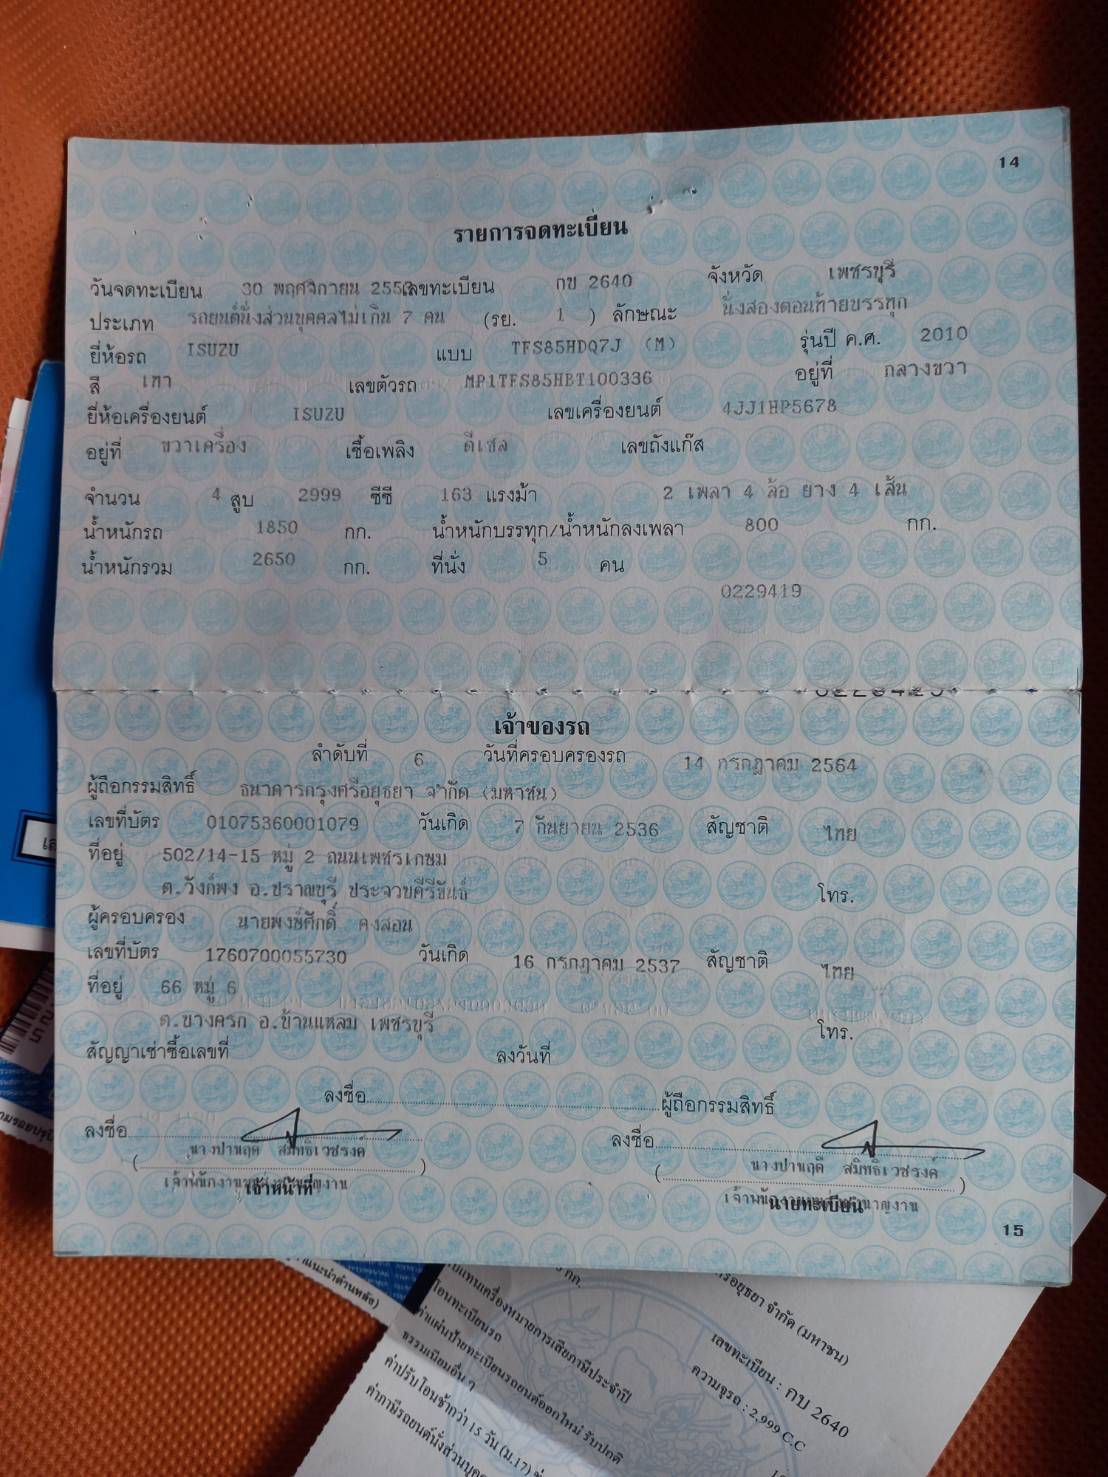 14
รายการจดทะเบียน
วันจดทะเบียน 30 พฤศจิกายน 2553 เลขทะเบียน กบ 2640 จังหวัด เพชรบุรี
ประเภท รถยนต์นั่งส่วนบุคคลไม่เกิน 7 คน (รย. 1 ) ลักษณะ นั่งสองตอนท้ายบรรทุก
ยี่ห้อรถ ISUZU แบบ TFS85HDQ7J (M) รุ่นปี ค.ศ. 2010
สี เทา เลขตัวรถ MP1TFS85HBT100336 อยู่ที่ กลางขวา
ยี่ห้อเครื่องยนต์ ISUZU เลขเครื่องยนต์ 4JJ1HP5678
อยู่ที่ ขวาเครื่อง เชื้อเพลิง ดีเซล เลขถังแก๊ส
จำนวน 4 สูบ 2999 ซีซี 163 แรงม้า 2 เพลา 4 ล้อ ยาง 4 เส้น
น้ำหนักรถ 1850 กก. น้ำหนักบรรทุก/น้ำหนักลงเพลา 800 กก.
น้ำหนักรวม 2650 กก. ที่นั่ง 5 คน
0229419
เจ้าของรถ
ลำดับที่ 6 วันที่ครอบครองรถ 14 กรกฎาคม 2564
ผู้ถือกรรมสิทธิ์ ธนาคารกรุงศรีอยุธยา จำกัด (มหาชน)
เลขที่บัตร 01075360001079 วันเกิด 7 กันยายน 2536 สัญชาติ ไทย
ที่อยู่ 502/14-15 หมู่ 2 ถนนเพชรเกษม
ต.วังก์พง อ.ปราณบุรี ประจวบคีรีขันธ์ โทร.
ผู้ครอบครอง นายพงษ์ศักดิ์ คงสอน
เลขที่บัตร 1760700055730 วันเกิด 16 กรกฎาคม 2537 สัญชาติ ไทย
ที่อยู่ 66 หมู่ 6
ต.บางครก อ.บ้านแหลม เพชรบุรี โทร.
สัญญาเช่าซื้อเลขที่ ลงวันที่
ลงชื่อ ผู้ถือกรรมสิทธิ์
ลงชื่อ ลงชื่อ
(นางปานฤดี สมิทธิเวชรงค์) (นางปานฤดี สมิทธิเวชรงค์)
เจ้าหน้าที่ นายทะเบียน
15
แนะนำด้านหลัง)
โอนทะเบียนรถ
ค่าแผ่นป้ายทะเบียนรถยนต์ออกใหม่ รับปกติ
ธรรมเนียมอื่น ๆ
ค่าปรับโอนช้ากว่า 15 วัน (ม.17)
จำกัด (มหาชน)
เลขทะเบียน : กบ 2640
ความจุรถ : 2,999 C.C